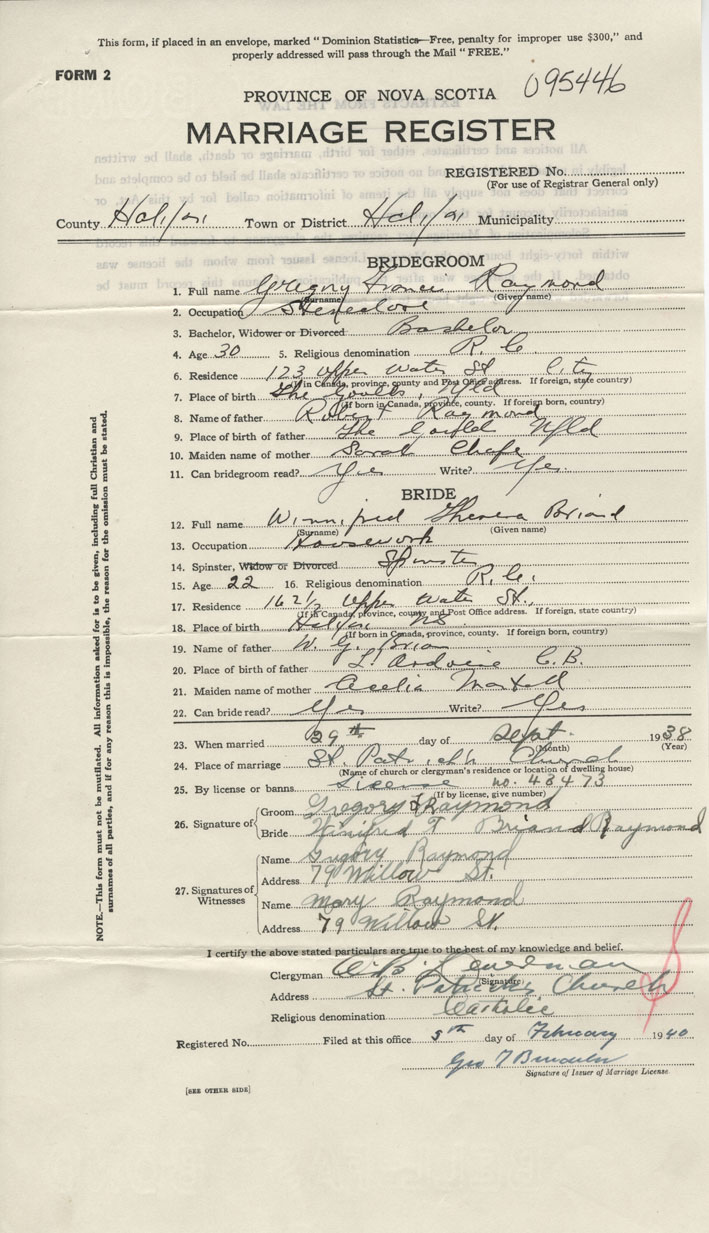 This form, if placed in an envelope, marked "Dominion Statistics—Free, penalty for improper use $300," and
properly addressed will pass through the Mail "FREE."
FORM 2
095446
PROVINCE OF NOVA SCOTIA
MARRIAGE REGISTER
REGISTERED No.
(For use of Registrar General only)
County Halifax Town or District Halifax Municipality
BRIDEGROOM
1. Full name Gregory Francis Raymond
(Surname) (Given name)
2. Occupation Stevedore
3. Bachelor, Widower or Divorced Bachelor
4. Age 30 5. Religious denomination R. C.
6. Residence 123 Upper Water St City
(If in Canada, province, county and Post Office address. If foreign, state country)
7. Place of birth The Goulds, Nfld
(If born in Canada, province, county. If foreign born, country)
8. Name of father Robert Raymond
9. Place of birth of father The Nfld
10. Maiden name of mother Sarah Chafe
11. Can bridegroom read? Yes Write? Yes.
BRIDE
12. Full name Winnifred Theresa Briand
(Surname) (Given name)
13. Occupation Housework
14. Spinster, Widow or Divorced Spinster
15. Age 22 16. Religious denomination R. C.
17. Residence 162½ Upper Water St.
(If in Canada, province, county and Post Office address. If foreign, state country)
18. Place of birth Halifax NS
(If born in Canada, province, county. If foreign born, country)
19. Name of father W. G. Brian
20. Place of birth of father L'Ardoise C.B.
21. Maiden name of mother Cecelia
22. Can bride read? Yes Write? Yes
23. When married 29th day of Sept. 1938
(Month) (Year)
24. Place of marriage St. Patrick's Church
(Name of church or clergyman's residence or location of dwelling house)
25. By license or banns License no. 43473
(If by license, give number)
26. Signature of
Groom Gregory F Raymond
Bride Winifred T Briand Raymond
27. Signatures of
Witnesses
Name Gregory Raymond
Address 79 Willow St.
Name Mary Raymond
Address 79 Willow St.
I certify the above stated particulars are true to the best of my knowledge and belief.
Clergyman
(Signature)
Address St. Patrick's Church
Religious denomination Catholic
Registered No. Filed at this office 5th day of February 1940
Geo T
Signature of Issuer of Marriage License.
[SEE OTHER SIDE]
NOTE.—This form must not be mutilated. All information asked for is to be given, including full Christian and
surnames of all parties, and if for any reason this is impossible, the reason for the omission must be stated.